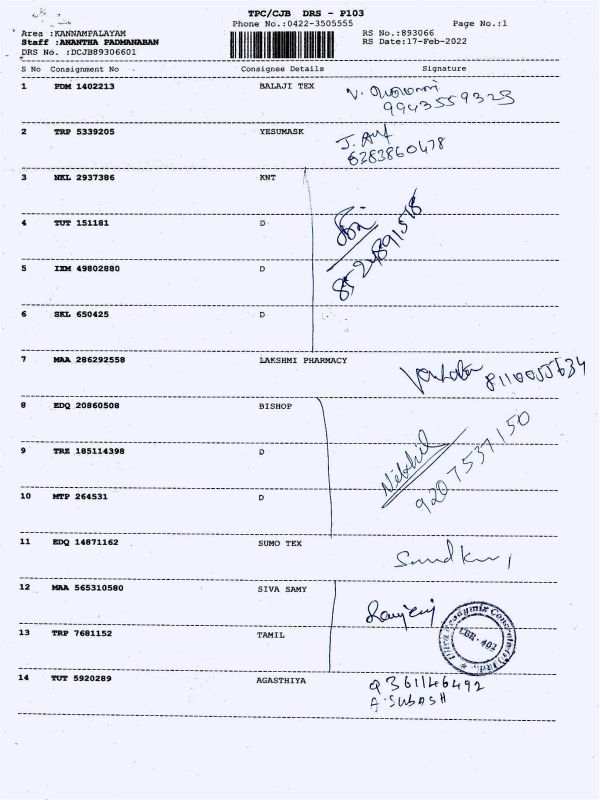 TPC/CJB DRS - P103
Phone No.:0422-3505555 Page No.:1
Area :KANNAMPALAYAM RS No.:893066
Staff :ANANTHA PADMANABAN RS Date:17-Feb-2022
DRS No. :DCJB89306601
S No Consignment No Consignee Details Signature
1 PDM 1402213 BALAJI TEX
9943559325
2 TRP 5339205 YESUMASK J.
8383860478
3 NKL 2937386 KNT
4 TUT 151181 D
5 IXM 49802880 D
6 SKL 650425 D
7 MAA 286292558 LAKSHMI PHARMACY
8 EDQ 20860508 BISHOP
9 TRZ 185114398 D Nikhil
10 MTP 264531 D 9207537150
11 EDQ 14871162 SUMO TEX
12 MAA 565310580 SIVA SAMY
13 TRP 7681152 TAMIL
14 TUT 5920289 AGASTHIYA 9361146492
A. SUBASH